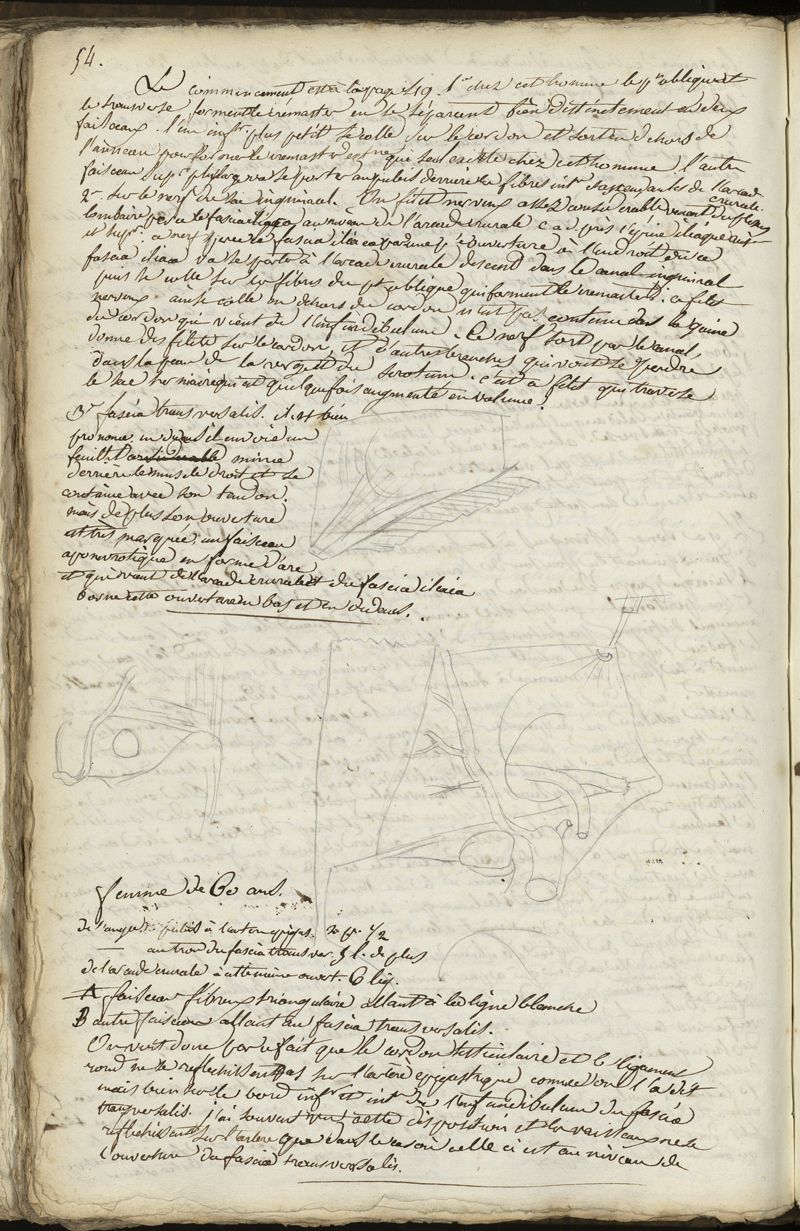 54.
Le commencement est à la page 419. 1° chez cet homme le pt oblique et
le transverse forment le crémaster en se séparant bien distinctement en deux
faisceaux. l'un infr. plus petit se colle sur le cordon et sort en dehors de
l'anneau pour former le cremaster externe qui seul existe chez cet homme l'autre
faisceau supr. plus large va se porter au pubis derrière les fibres intes ascendantes de l'arcade
crurale.
2° sur le nerf du sac inguinal. Un filet nerveux assez considérable venant du plexus
lombaire perce le fascia iliaca au niveau de l'arcade crurale c. a d. près l'épine iliaque ant
et supr. ce nerf perce le fascia iliaca par une pte ouverture à l'endroit où ce
fascia iliaca va se porter à l'arcade crurale descend dans le canal inguinal
puis se colle sur les fibres du pt oblique qui forment le cremaster. ce filet
nerveux ainsi collé en dehors du cordon n'est pas contenu dans la gaine
du cordon qui vient de l'infundibulum. Ce nerf sort par le canal,
donne des filets sur le cordon, et d'autres branches qui vont se perdre
dans la peau de la verge et du scrotum. c'est ce filet qui traverse
le sac herniaire qui est quelquefois augmenté en volume.
3° fascia transversalis. il est bien
prononcé en dedans il envoie un
feuillet mince
derrière le muscle droit et se
continue avec son tendon.
mais de plus son ouverture
est très marquée, un faisceau
aponevrotique en forme d'arc
et qui vient de l'arcade crurale et du fascia iliaca
borne cette ouverture en bas et en dedans.
femme de 60 ans.
de l'angle du pubis à l'artère epigas. 2 po. 1/2
au trou du fascia transver. 5 l. de plus
de l'arcade crurale à cette même ouvert. 6 lig.
A faisceau fibreux triangulaire allant à la ligne blanche
B autre faisceau allant au fascia transversalis.
On voit donc par ce fait que le cordon testiculaire et le ligament
rond ne se réfléchissent pas sur l'artère epigastrique comme on l'a dit
mais bien sur le bord infr et int de l'infundibulum du fascia
transversalis. J'ai souvent vu cette disposition et les vaisseaux ne se
réfléchissent sur l'artère que dans le cas où celle ci est au niveau de
l'ouverture du fascia transversalis.